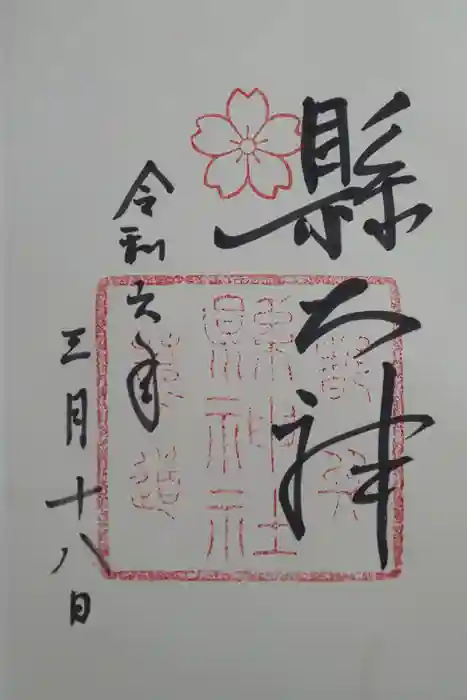 縣大神
令和六年
三月十八日
縣神社